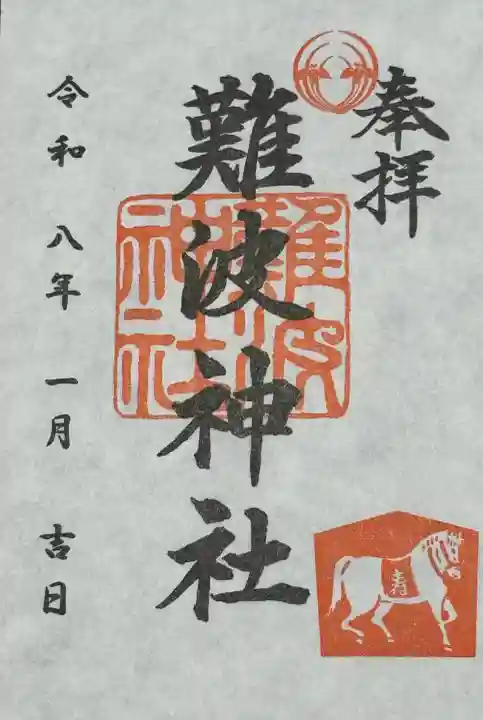 奉拝
難波神社
難波神社
令和 八年 一月 吉日
寿